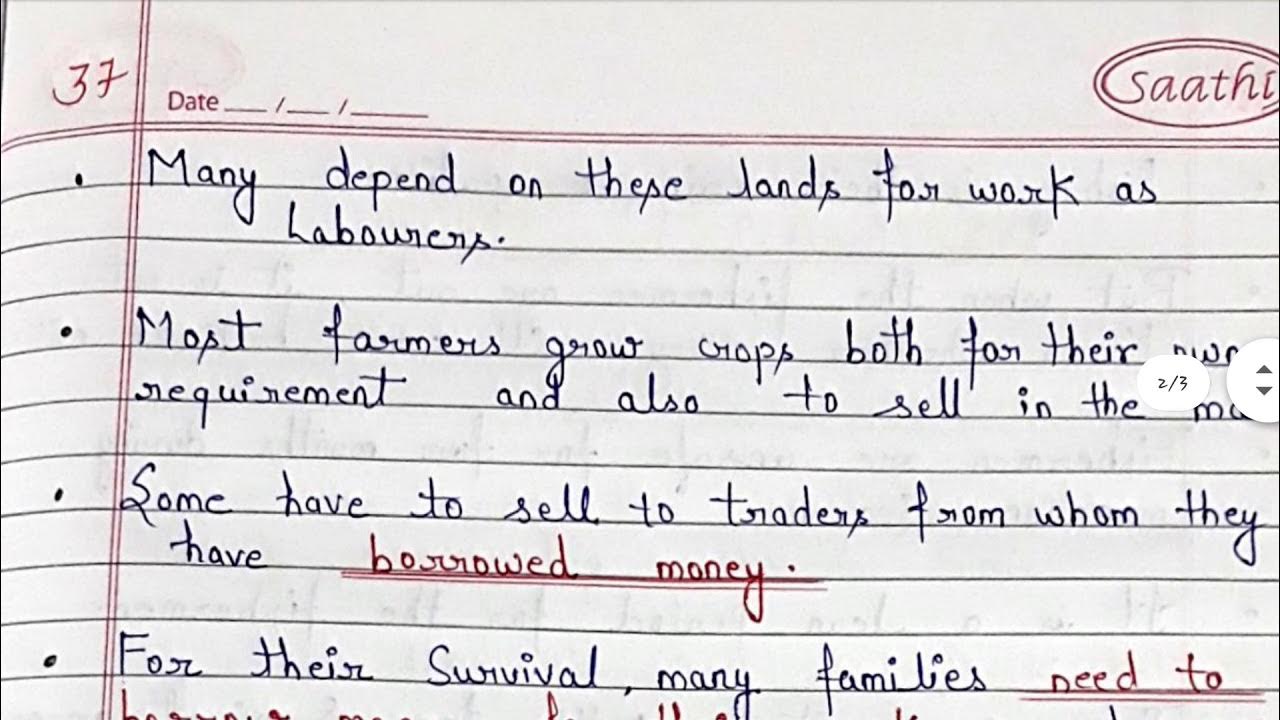 37
Date __/__/____
Saathi
• Many depend on these lands for work as
Labourers.
• Most farmers grow crops both for their own
2/3
requirement and also to sell in the
• Some have to sell to traders from whom they
have borrowed money.
• For their Survival, many families need to